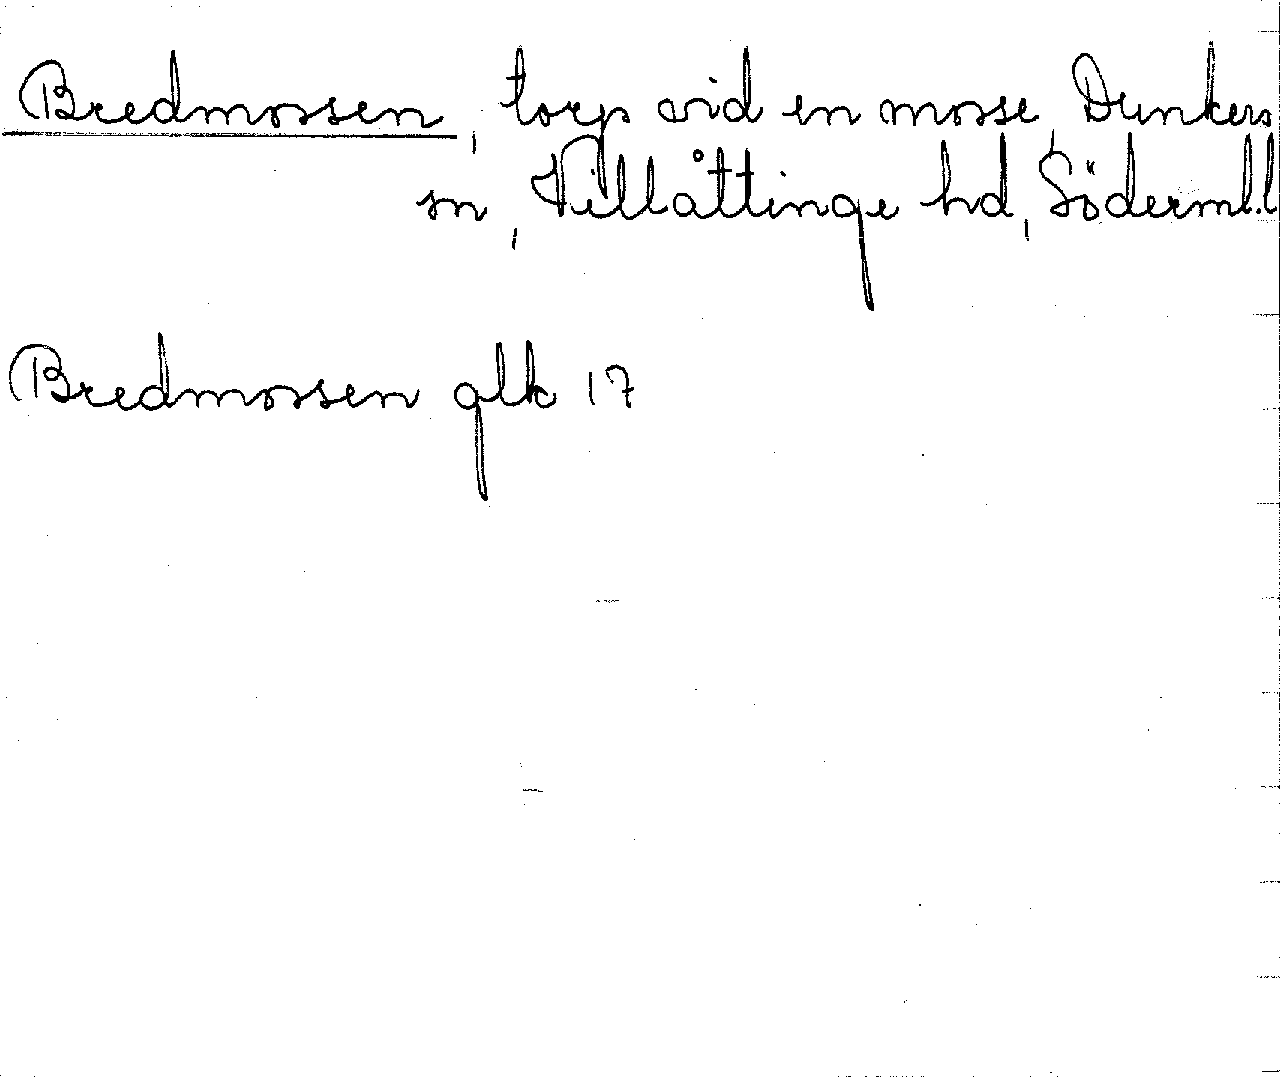 Bredmossen, torp vid en mosse, Dunkers
sn, Villåttinge hd, Söderml.l
Bredmossen glk 17